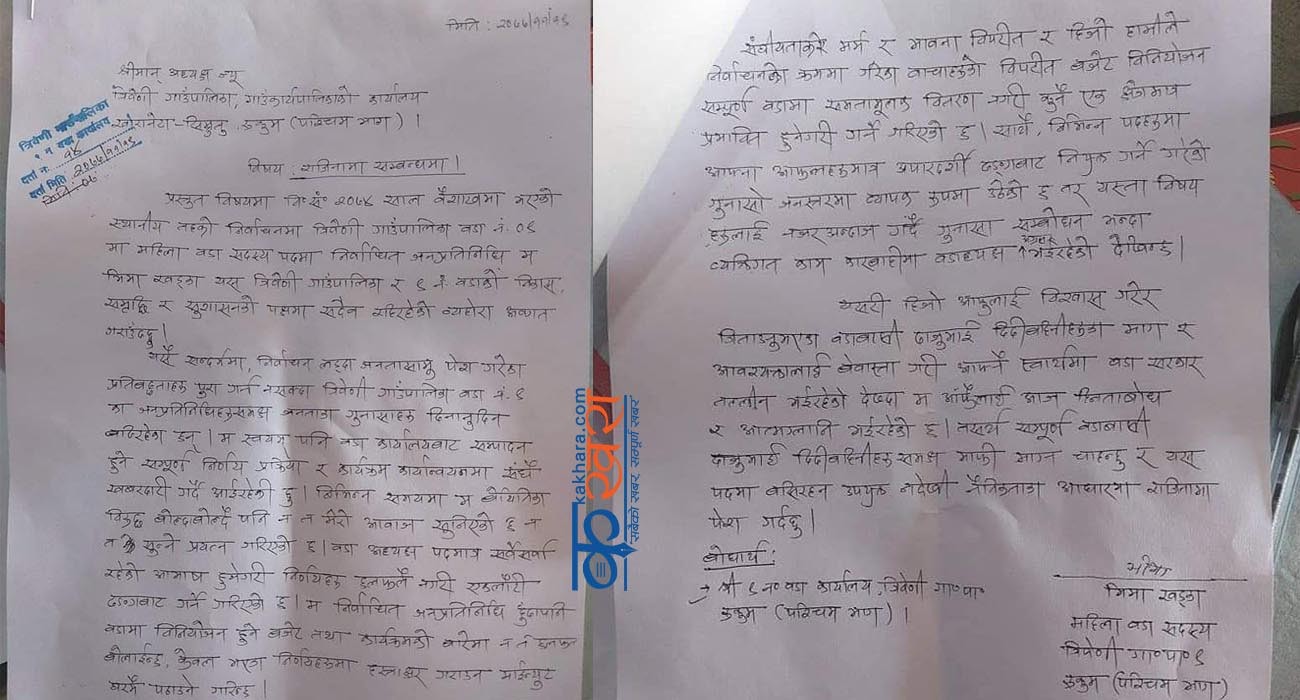 मिति : २०७७/११/१६
श्रीमान् अध्यक्ष ज्यू
त्रिवेणी गाउँपालिका, गाउँकार्यपालिकाको कार्यालय
रुकुम (पश्चिम भाग) ।
त्रिवेणी गाउँपालिका
९ न वडा कार्यालय
दर्ता नं. ९४
दर्ता मिति २०७७/११/१६
विषय : राजिनामा सम्बन्धमा ।
प्रस्तुत विषयमा वि॰सं॰ २०७४ साल वैशाखमा भएको
स्थानीय तहको निर्वाचनमा त्रिवेणी गाउँपालिका वडा नं. ०९
मा महिला वडा सदस्य पदमा निर्वाचित जनप्रतिनिधि म
भिमा खड्का यस त्रिवेणी गाउँपालिका र ९ नं वडाको विकास,
समृद्धि र सुशासनको पक्षमा सदैव रहिरहेको व्यहोरा अवगत
गराउँदछु ।
यसै सन्दर्भमा, निर्वाचन लड्दा जनतासामु पेश गरेका
प्रतिबद्धताहरु पुरा गर्न नसक्दा त्रिवेणी गाउँपालिका वडा नं. ९
का जनप्रतिनिधिहरुसमक्ष जनताका गुनासाहरु दिनानुदिन
बढिरहेका छन् । म स्वयम पनि वडा कार्यालयबाट सम्पादन
हुने सम्पूर्ण निर्णय प्रक्रिया र कार्यक्रम कार्यान्वयनमा सधैँ
खबरदारी गर्दै आईरहेकी छु । विभिन्न समयमा म बेथितिका
विरुद्ध बोल्दाबोल्दै पनि न त मेरो आवाज सुनिएको छ न
त सुन्ने प्रयत्न गरिएको छ । वडा अध्यक्ष पदमात्र सर्वेसर्वा
रहेको आभाष हुनेगरी निर्णयहरु छलफलै नगरी एकलौटी
ढङ्गबाट गर्ने गरिएको छ । म निर्वाचित जनप्रतिनिधि हुँदापनि
वडामा विनियोजन हुने बजेट तथा कार्यक्रमको बारेमा न त छलफल
बोलाईन्छ, केवल भएका निर्णयहरुमा हस्ताक्षर गराउन माईन्युट
घरमै पठाउने गरिन्छ ।
संघीयताको मर्म र भावना विपरीत र हिजो हामीले
निर्वाचनको क्रममा गरेका वाचाहरुको विपरीत बजेट विनियोजन
सम्पूर्ण वडामा समतामूलक वितरण नगरी कुनै एक क्षेत्रमात्र
प्रभावित हुनेगरी गर्ने गरिएको छ । साथै, विभिन्न पदहरुमा
आफ्ना आफन्तहरुमात्र अपारदर्शी ढङ्गबाट नियुक्त गर्ने गरेको
गुनासो जनस्तरमा व्यापक रुपमा उठेको छ तर यस्ता विषय
हरुलाई नजर अन्दाज गर्दै गुनासा सम्बोधन भन्दा
व्यक्तिगत काम कारवाहीमा वडाध्यक्ष भईरहेको देखिन्छ ।
यसरी हिजो आफुलाई विश्वास गरेर
जिताउनुभएका वडावासी दाजुभाई दिदीबहिनीहरुका माग र
आवश्यकतालाई बेवास्ता गरी आफ्नै स्वार्थमा वडा सरकार
तल्लीन भईरहेको देख्दा म आफैँलाई आज हिनताबोध
र आत्मग्लानि भईरहेको छ । तसर्थ सम्पूर्ण वडावासी
दाजुभाई दिदीबहिनीहरु समक्ष माफी माग्न चाहन्छु र यस
पदमा बसिरहन उपयुक्त नदेखी नैतिकताका आधारमा राजिनामा
पेश गर्दछु ।
बोधार्थ :
श्री ९ न॰ वडा कार्यालय, त्रिवेणी गा॰पा॰
रुकुम (पश्चिम भाग) ।
भिमा
भिमा खड्का
महिला वडा सदस्य
त्रिवेणी गा॰पा॰ ९
रुकुम (पश्चिम भाग)
कखरा
kakhara.com
सबैको खबर सम्पूर्ण खबर